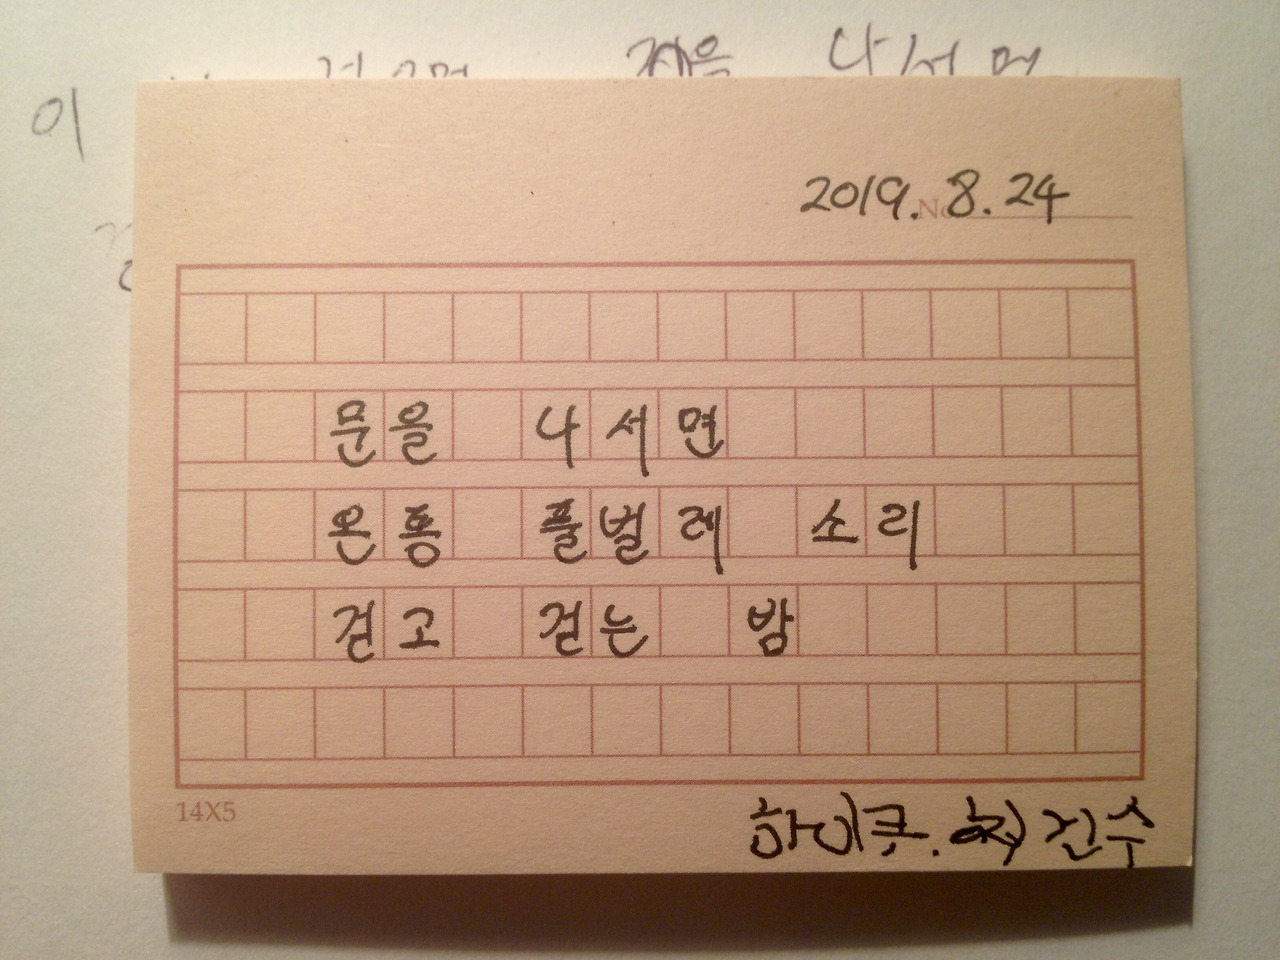 이 나서면
2019. 8. 24
No
문을 나서면
온통 풀벌레 소리
걷고 걷는 밤
14X5
하이쿠. 진수